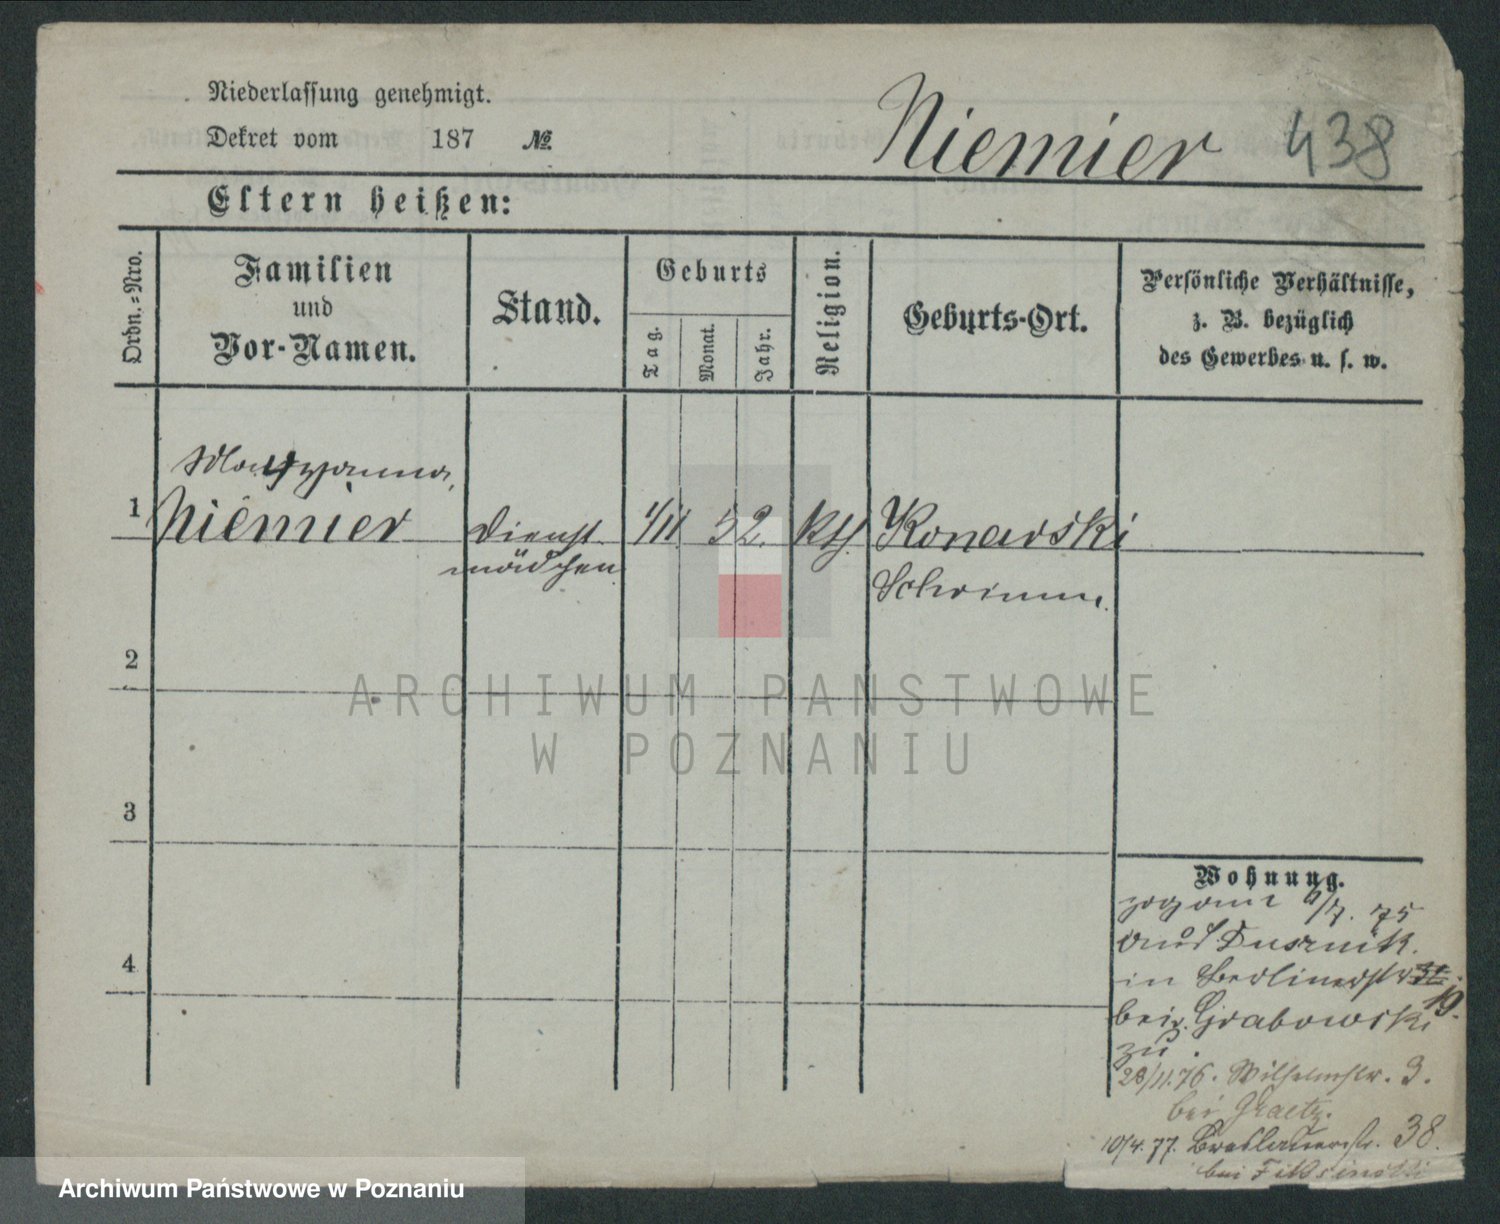 Niederlassung genehmigt.
Dekret vom 187 №
Niemier 438
Eltern heißen:
Ordn.=Nro.
Familien
und
Vor-Namen.
Stand.
Geburts
Tag.
Monat.
Jahr.
Religion.
Geburts-Ort.
Persönliche Verhältnisse,
z. B. bezüglich
des Gewerbes u. s. w.
Maryanna
1 Niemier Dienst 1/11 52. kth. Konarski
mädchen Schrimm.
2
3
4
ARCHIWUM PANSTWOWE
W POZNANIU
Wohnung.
zog am 6/7. 75
aus Dusznik
in Berlinerstr 31
19.
bei Grabowski
zu.
28/11.76. Wilhelmstr. 3.
bei Graetz.
10/4.77. Breslauerstr. 38.
bei
Archiwum Państwowe w Poznaniu